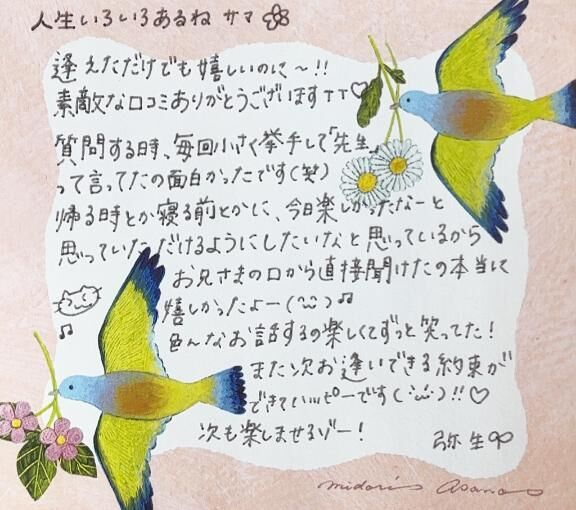 人生いろいろあるね サマ
逢えただけでも嬉しいのに〜!!
素敵な口コミありがとうございますTT♡
質問する時、毎回小さく挙手して「先生」
って言ってたの面白かったです(笑)
帰る時とか寝る前とかに、今日楽しかったなーと
思っていただけるようにしたいなと思っているから
お兄さまの口から直接聞けたの本当に
嬉しかったよー(¨̮)♫
色んなお話するの楽しくてずっと笑ってた!
また次お逢いできる約束が
できていッピーです(¨̮)!!♡
次も楽しませるゾー!
弥生
midori asano